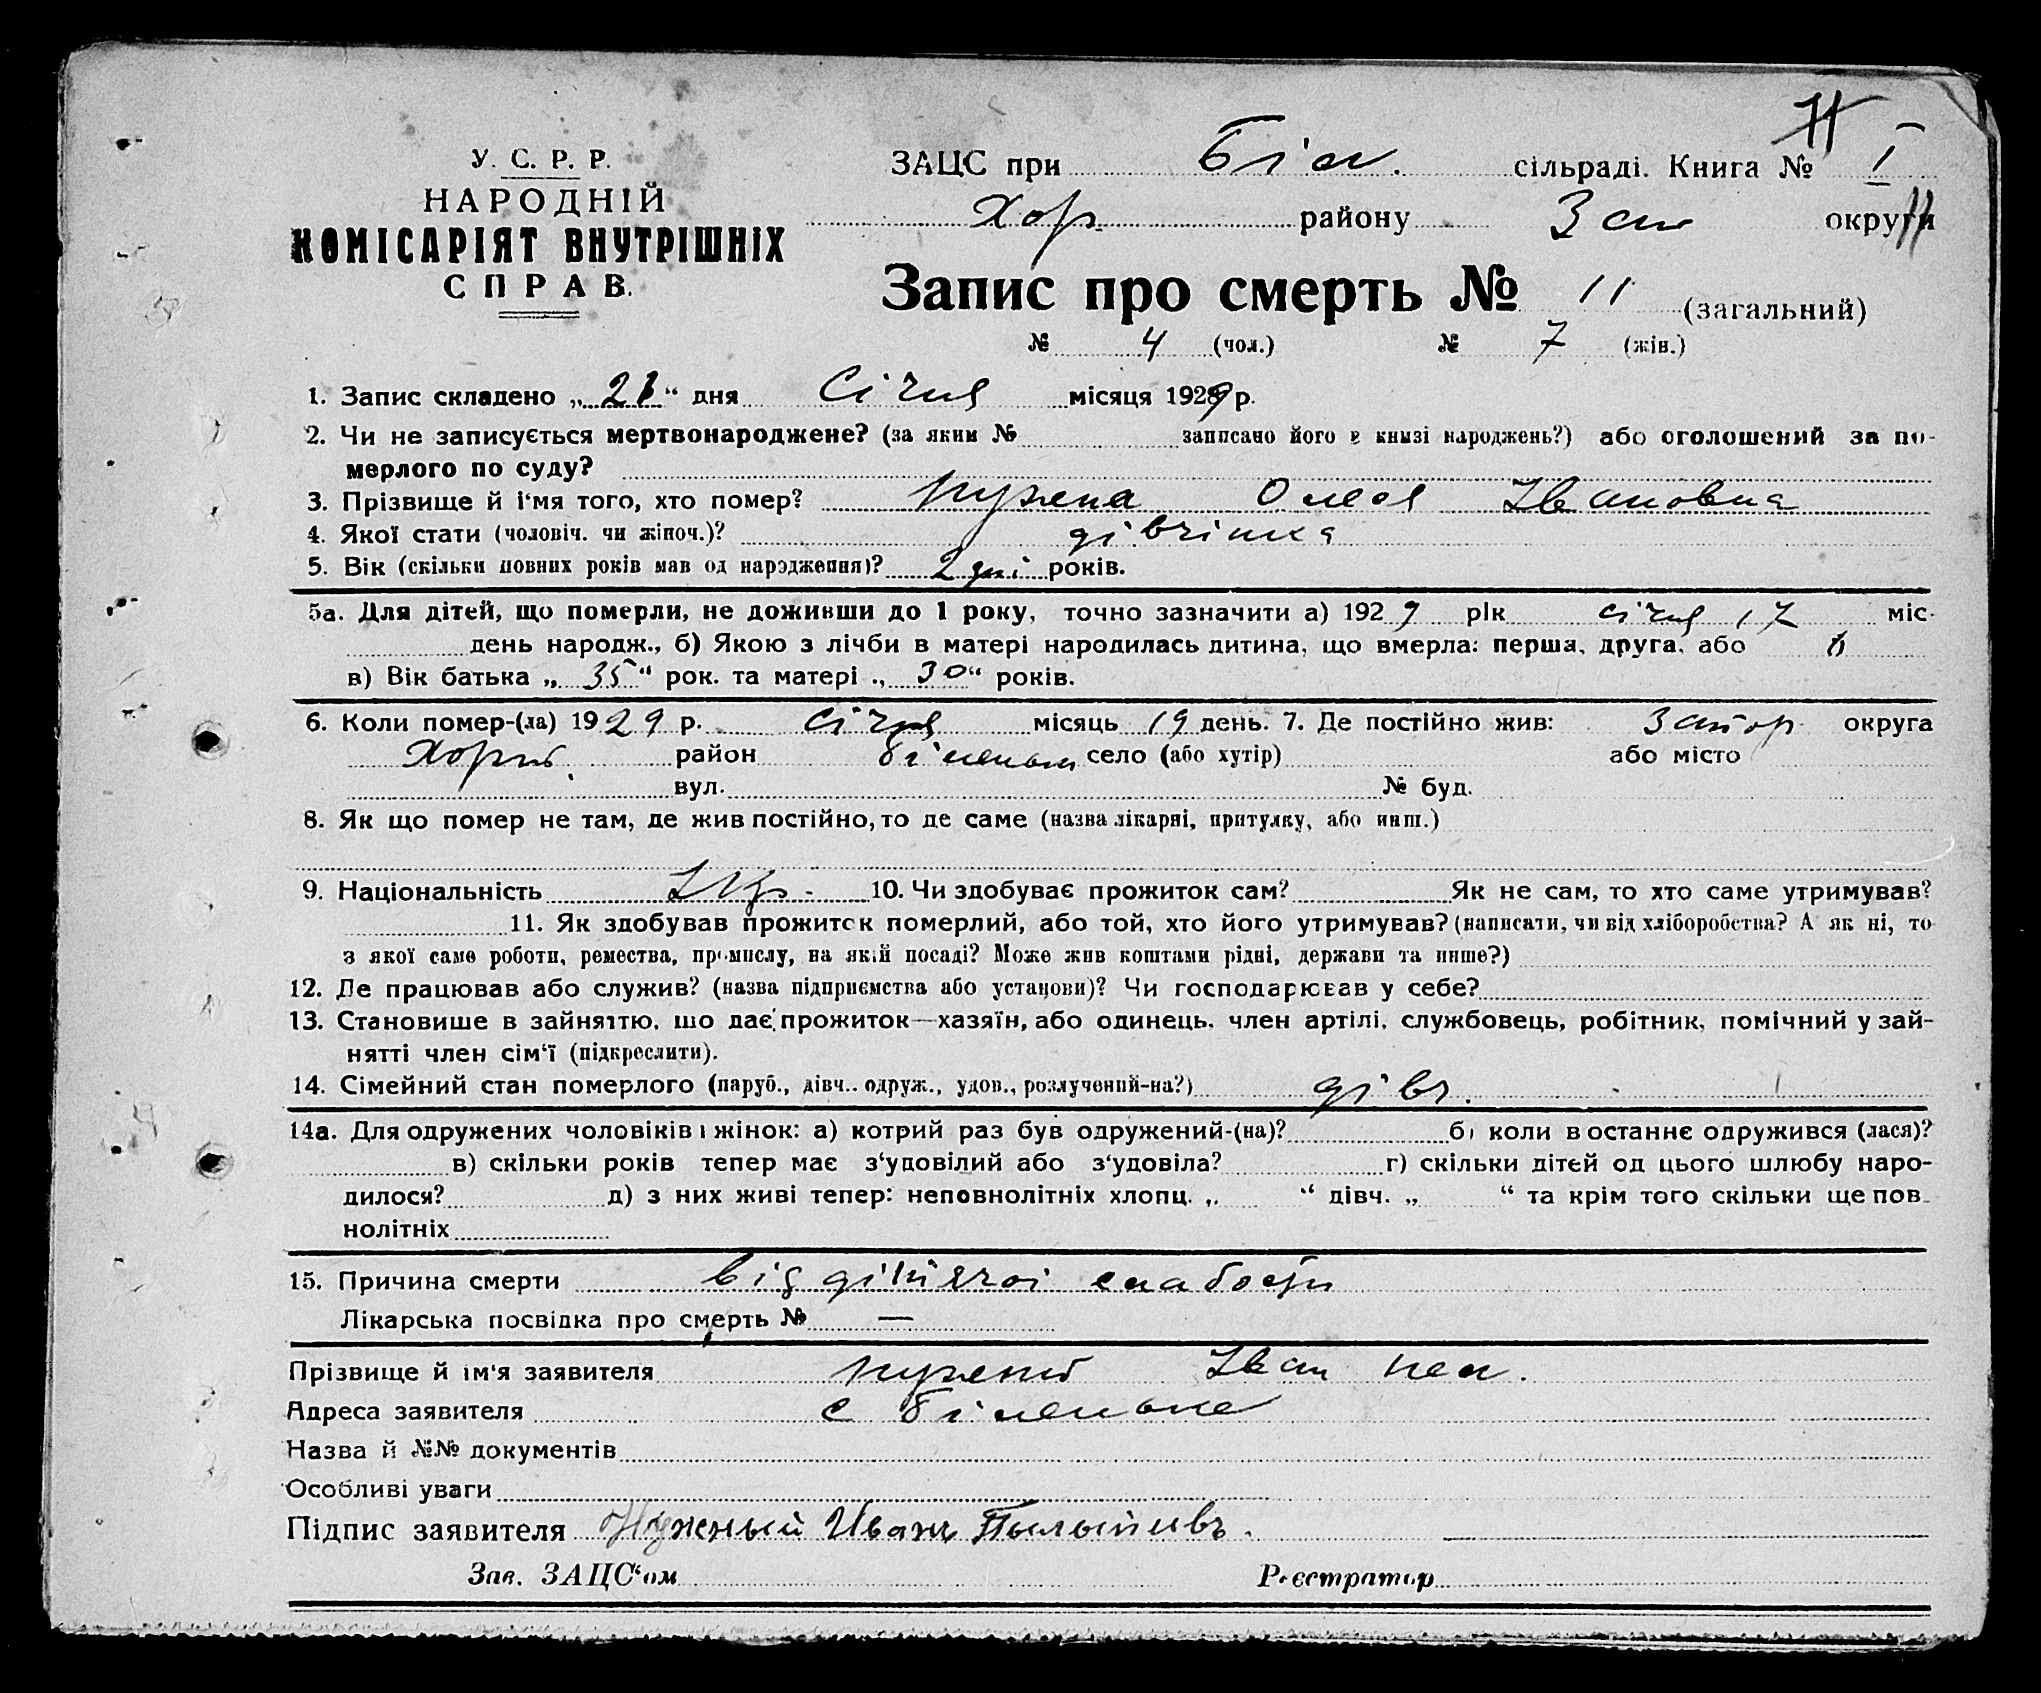 У. С. Р. Р.
НАРОДНІЙ
КОМІСАРІЯТ ВНУТРІШНІХ
СПРАВ.
ЗАЦС при Біл. сільраді. Книга № I
Хор. району Зап округи
Запис про смерть № 11 (загальний)
№ 4 (чол.) № 7 (жін.)
1. Запис складено „21“ дня Січня місяця 1929 р.
2. Чи не записується мертвонароджене? (за яким № записано його в книзі народжень?) або оголошений за по-
мерлого по суду?
3. Прізвище й і'мя того, хто помер? Нужена Олея Івановна
4. Якої стати (чоловіч. чи жіноч.)? дівчинка
5. Вік (скільки повних років мав од народження)? 2 дні років.
5а. Для дітей, що померли, не доживши до 1 року, точно зазначити а) 1929 рік січня 17 міс-
день народж., б) Якою з лічби в матері народилась дитина, що вмерла: перша, друга, або
в) Вік батька „35“ рок. та матері „30“ років.
6. Коли помер-(ла) 1929 р. Січня місяць 19 день. 7. Де постійно жив: Запор округа
район село (або хутір) або місто
вул. № буд.
8. Як що помер не там, де жив постійно, то де саме (назва лікарні, притулку, або инш.)
9. Національність Укр. 10. Чи здобуває прожиток сам? Як не сам, то хто саме утримував?
11. Як здобував прожиток померлий, або той, хто його утримував? (написати, чи від хліборобства? А як ні, то
з якої саме роботи, ремества, промислу, на якій посаді? Може жив коштами рідні, держави та инше?)
12. Де працював або служив? (назва підприємства або установи)? Чи господарював у себе?
13. Становище в зайняттю, що дає прожиток—хазяїн, або одинець, член артілі, службовець, робітник, помічний у зай-
нятті член сім'ї (підкреслити).
14. Сімейний стан померлого (паруб., дівч.. одруж., удов., розлучений-на?) дівч.
14а. Для одружених чоловіків і жінок: а) котрий раз був одружений-(на)? б) коли востаннє одружився (лася)?
в) скільки років тепер має з'удовілий або з'удовіла? г) скільки дітей од цього шлюбу наро-
дилося? д) з них живі тепер: неповнолітніх хлопц. „ “ дівч. „ “ та крім того скільки ще пов-
нолітніх
15. Причина смерти від дітячої слабости
Лікарська посвідка про смерть № —
Прізвище й ім'я заявителя Іван
Адреса заявителя с Біленьке
Назва й №№ документів
Особливі уваги
Підпис заявителя Нужный Иванъ
Зав. ЗАЦС'ом Реєстратор